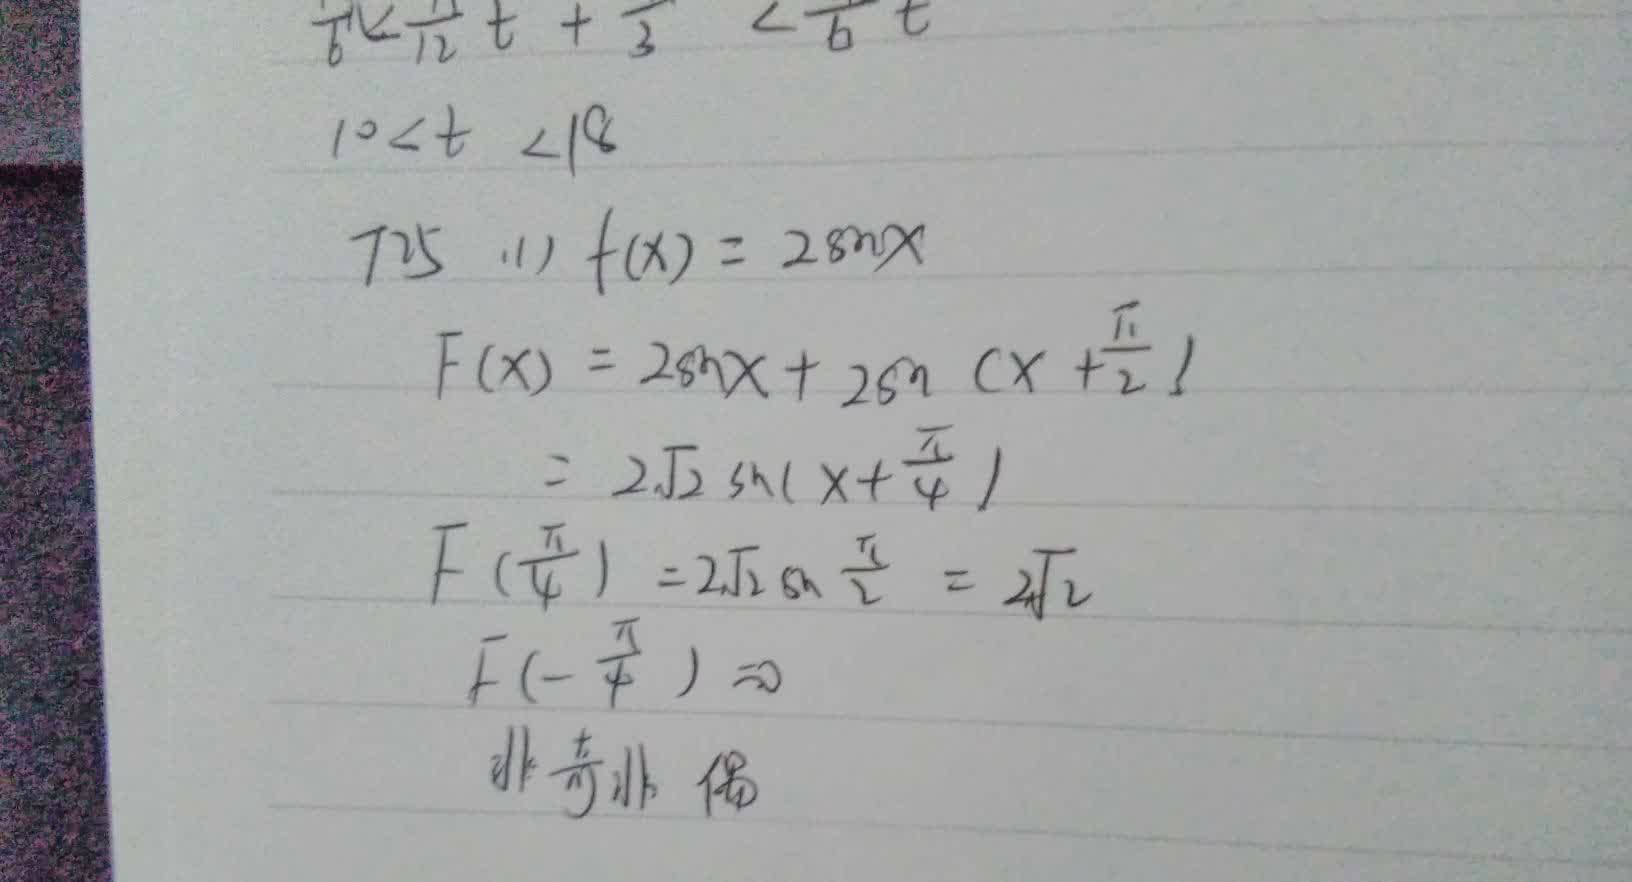 /6 < π/12 t + /3 < /6 t
10 < t < 18
T25 (1) f(x) = 2sinx
F(x) = 2sinx + 2sin (x + π/2)
= 2√2 sin(x + π/4)
F(π/4) = 2√2 sin π/2 = 2√2
F(-π/4) = 0
非奇非偶